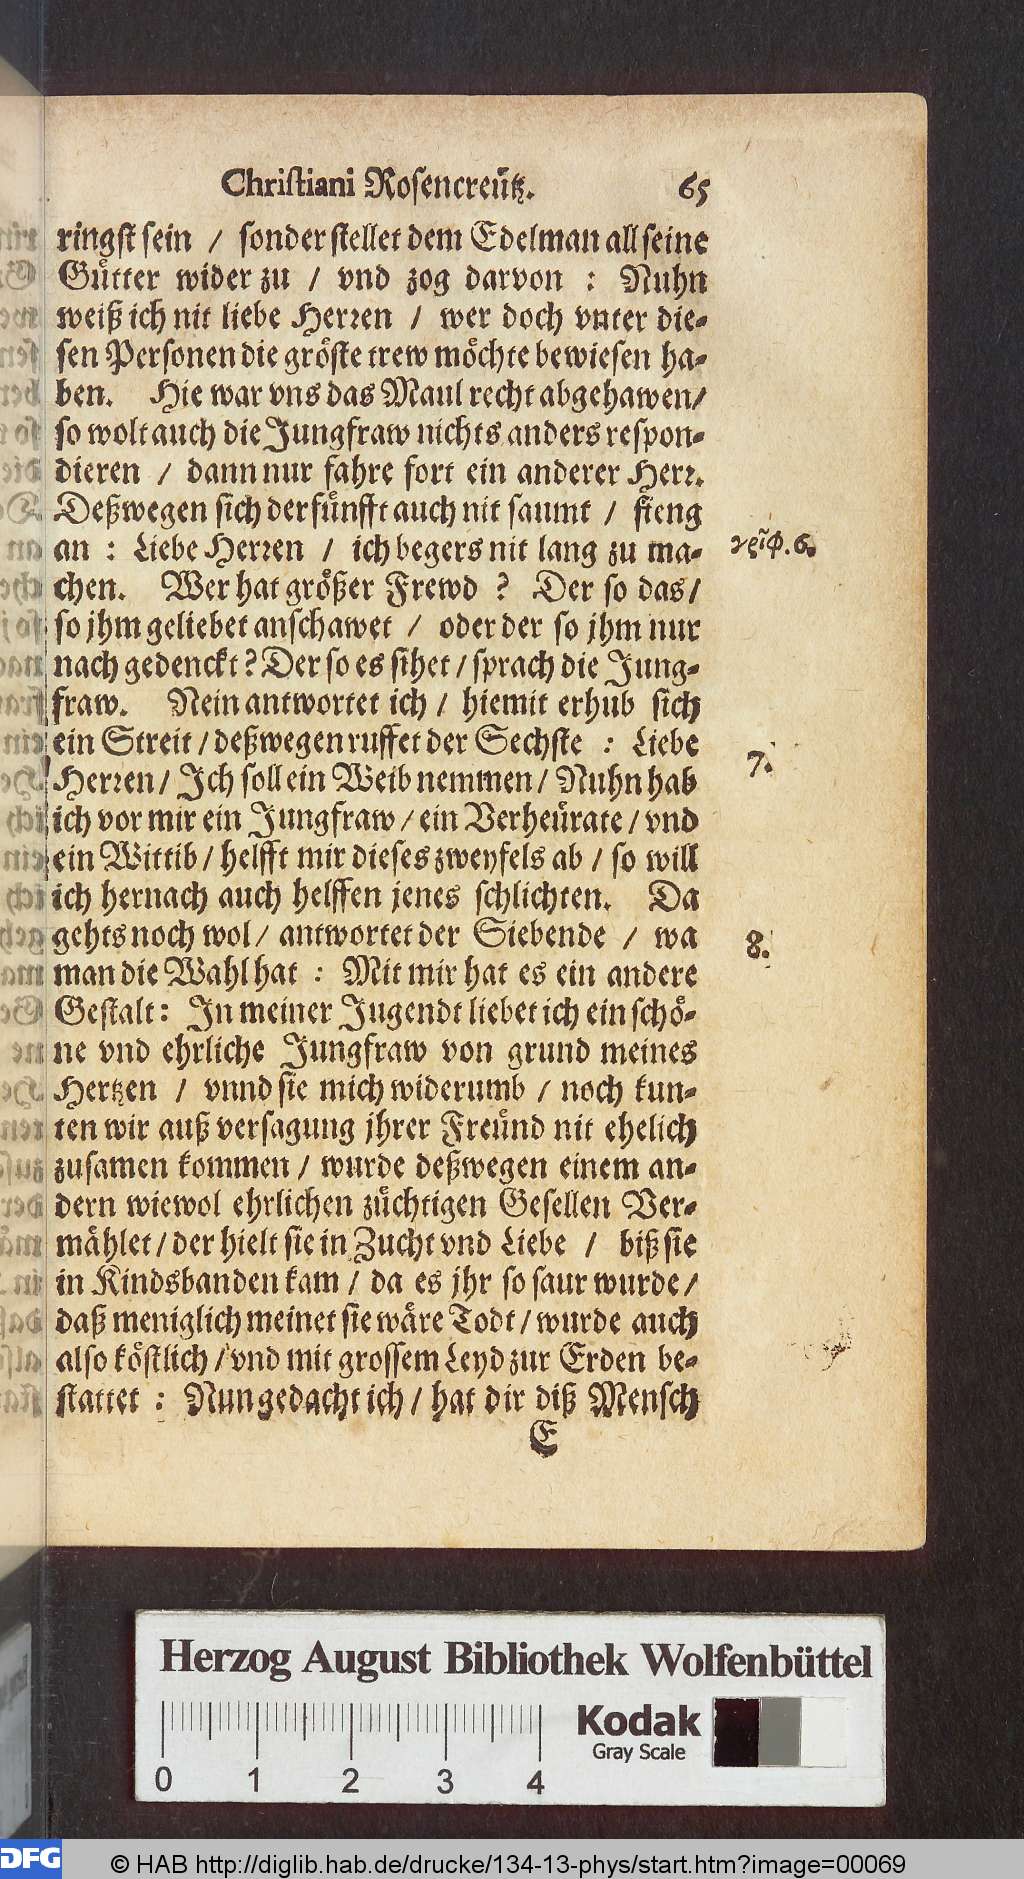 Christiani Rosencreütz. 65
ringst sein / sonder stellet dem Edelman all seine
Gütter wider zu / vnd zog darvon : Nuhn
weiß ich nit liebe Herren / wer doch vnter die-
sen Personen die gröste trew möchte bewiesen ha-
ben. Hie war vns das Maul recht abgehawen/
so wolt auch die Jungfraw nichts anders respon-
dieren / dann nur fahre fort ein anderer Herr.
Deßwegen sich der fünfft auch nit saumt / fieng
an : Liebe Herren / ich begers nit lang zu ma-
6.
chen. Wer hat größer Frewd ? Der so das/
so jhm geliebet anschawet / oder der so jhm nur
nach gedenckt? Der so es sihet / sprach die Jung-
fraw. Nein antwortet ich / hiemit erhub sich
ein Streit / deßwegen ruffet der Sechste : Liebe
7.
Herren / Ich soll ein Weib nemmen / Nuhn hab
ich vor mir ein Jungfraw / ein Verheürate / vnd
ein Wittib / helfft mir dieses zweyfels ab / so will
ich hernach auch helffen jenes schlichten. Da
gehts noch wol / antwortet der Siebende / wa
8.
man die Wahl hat : Mit mir hat es ein andere
Gestalt: In meiner Jugendt liebet ich ein schö-
ne vnd ehrliche Jungfraw von grund meines
Hertzen / vnnd sie mich widerumb / noch kun-
ten wir auß versagung jhrer Freünd nit ehelich
zusamen kommen / wurde deßwegen einem an-
dern wiewol ehrlichen züchtigen Gesellen Ver-
mählet / der hielt sie in Zucht vnd Liebe / biß sie
in Kindsbanden kam / da es jhr so saur wurde /
daß meniglich meinet sie wäre Todt / wurde auch
also köstlich / vnd mit grossem Leyd zur Erden be-
stattet : Nun gedacht ich / hat dir diß Mensch
E
Herzog August Bibliothek Wolfenbüttel
Kodak
Gray Scale
0 1 2 3 4
DFG
© HAB http://diglib.hab.de/drucke/134-13-phys/start.htm?image=00069